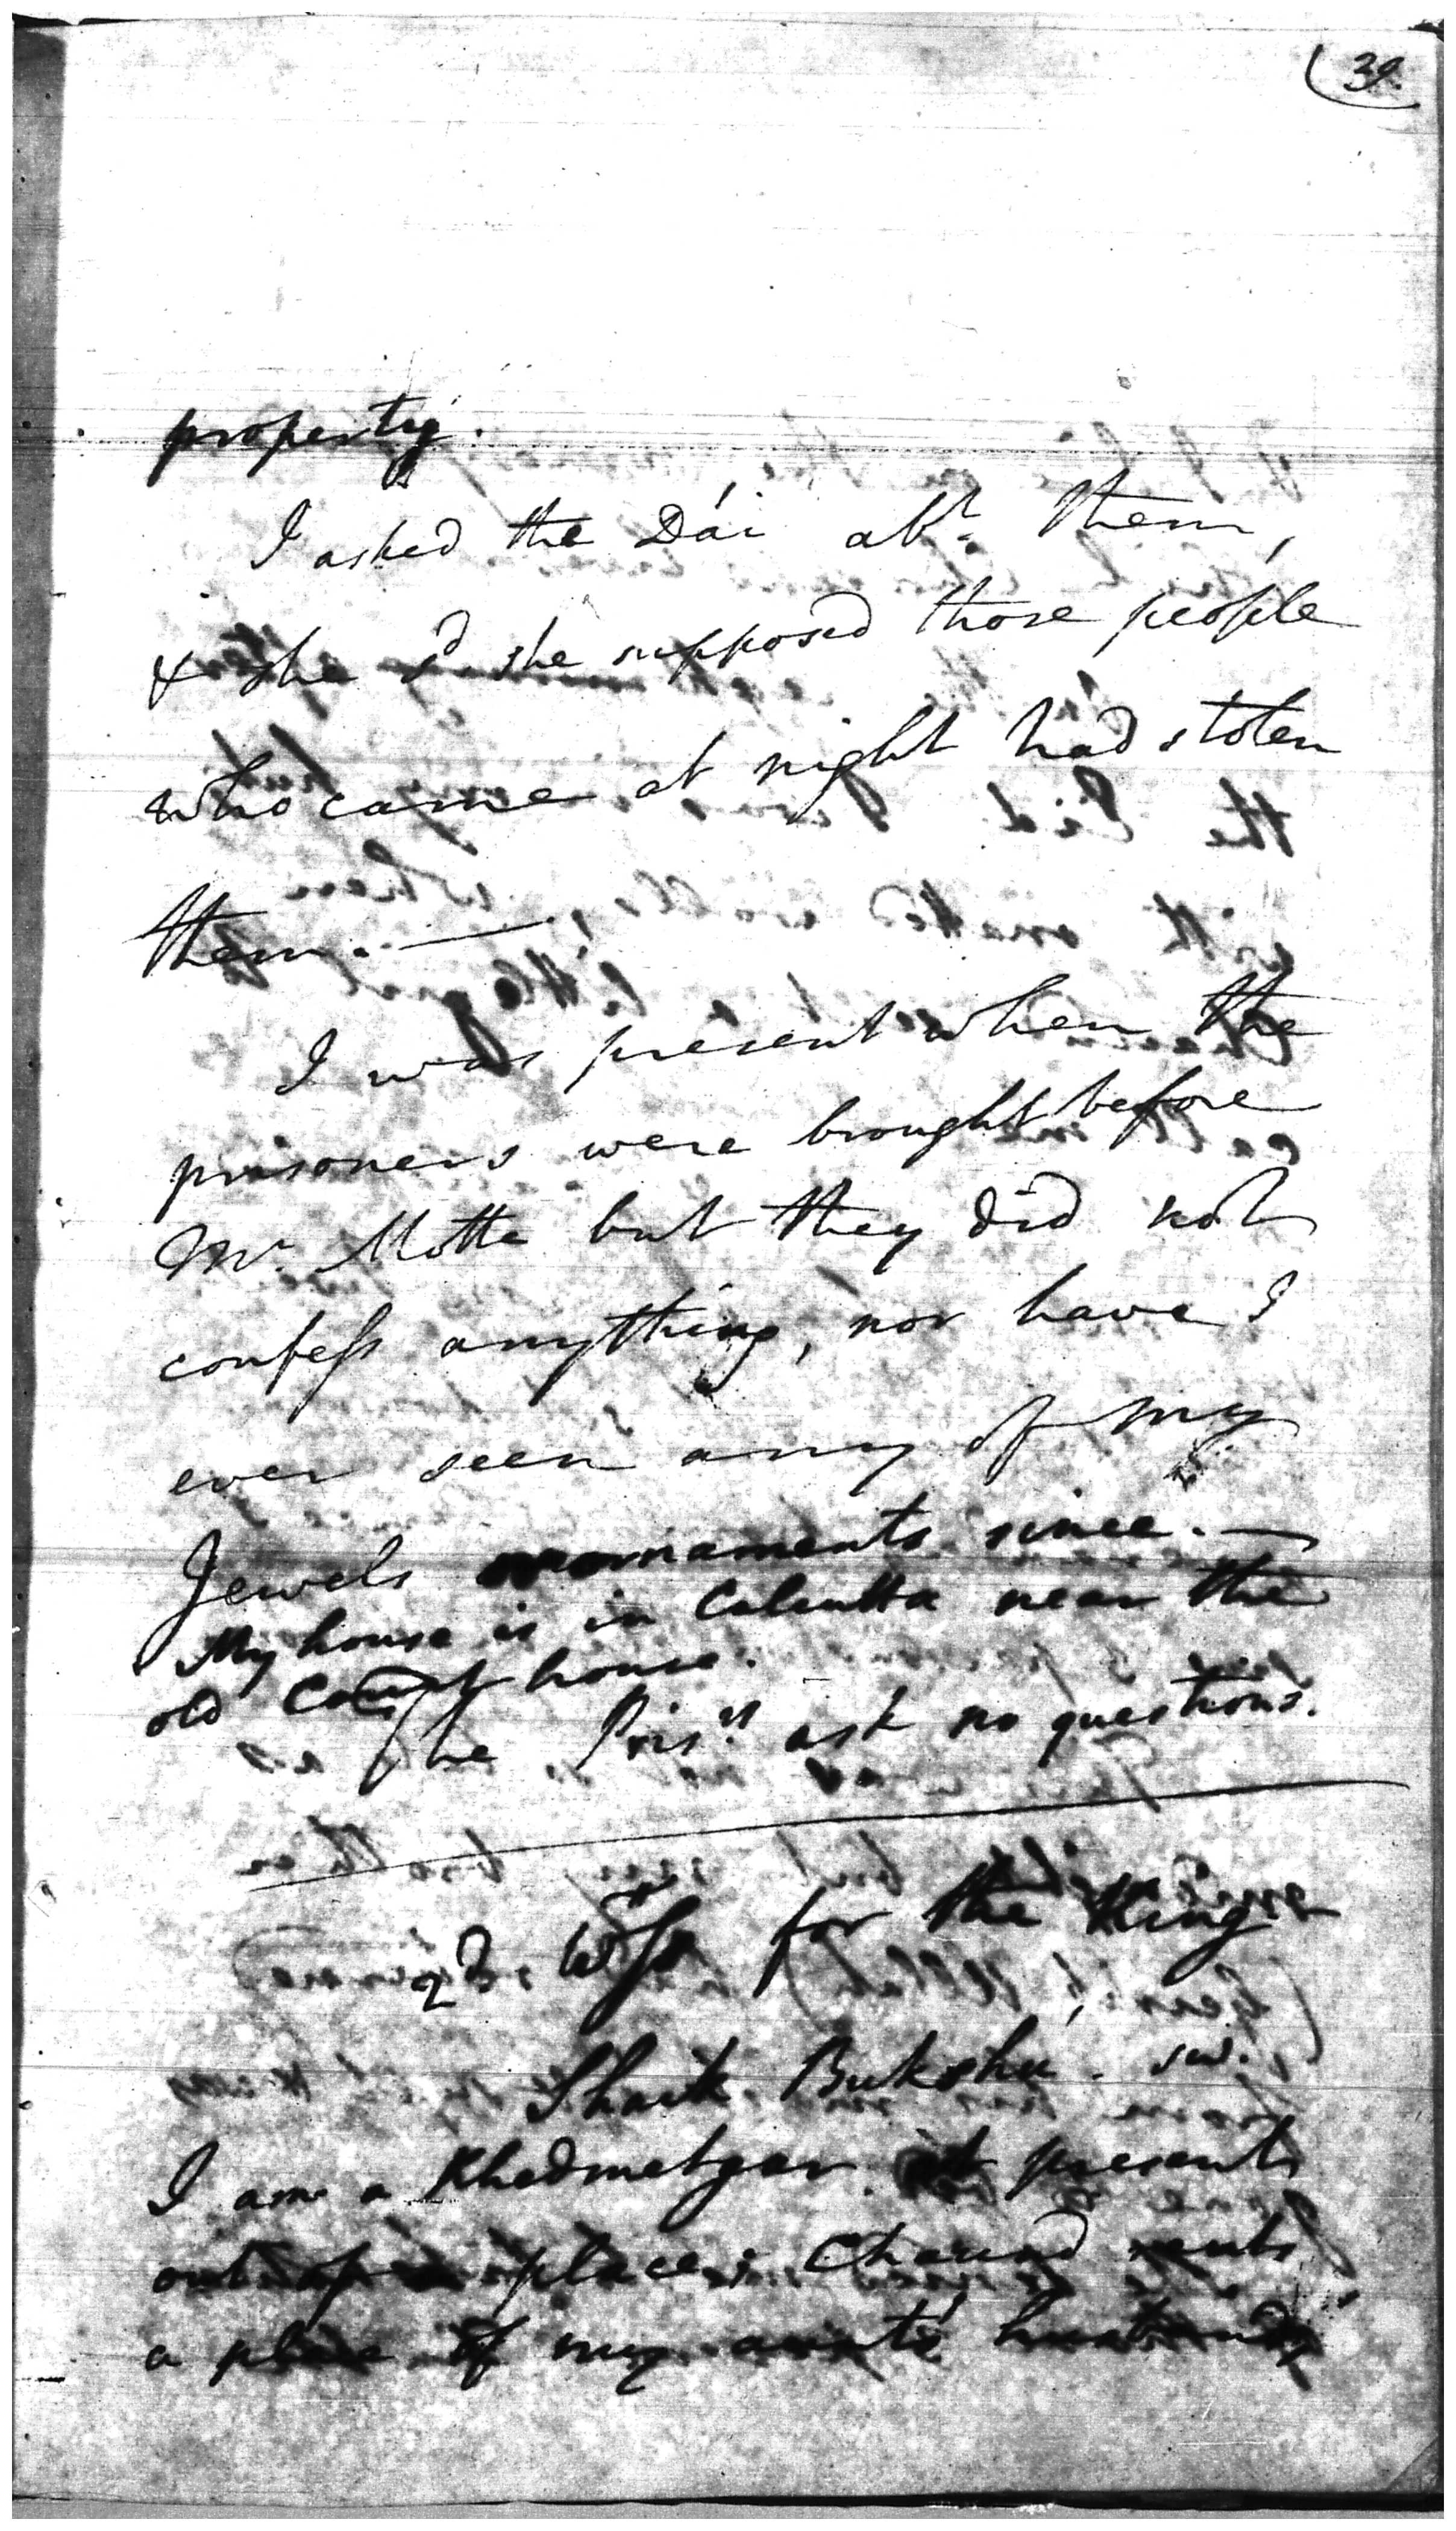 39.
property.
I asked the Dái abt. them,
& she sd. she supposed those people
who came at night had stolen
them. —
I was present when the
prisoners were brought before
Mr. Motte but they did not
confess anything, nor have I
ever seen any of my
Jewels or ornaments since. —
My house is in Calcutta near the
old Court house.
The Prisrs. ask no questions.
2d. Wss for the King
Shaik Bukshu. sw.
I am a Khedmetgar at present
out of place. Chaund rents
a place of my aunt's husband,